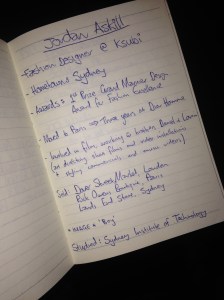 Jordan Askill
- Fashion Designer @ Ksubi
- Hometown: Sydney
- Awards: 1st Prize Grand Magnier Design
Award for Fashion Excellence
- Moved to Paris → Three years at Dior Homme
- Involved in film, working w/ brothers, Daniel & Lorin
(co directing short films and video installations
+ styling commercials, and music videos)
Sold: Dover Street Market, London
Rick Owens Boutique, Paris
Lands End Store, Sydney
Studied: Sydney Institute of Technology